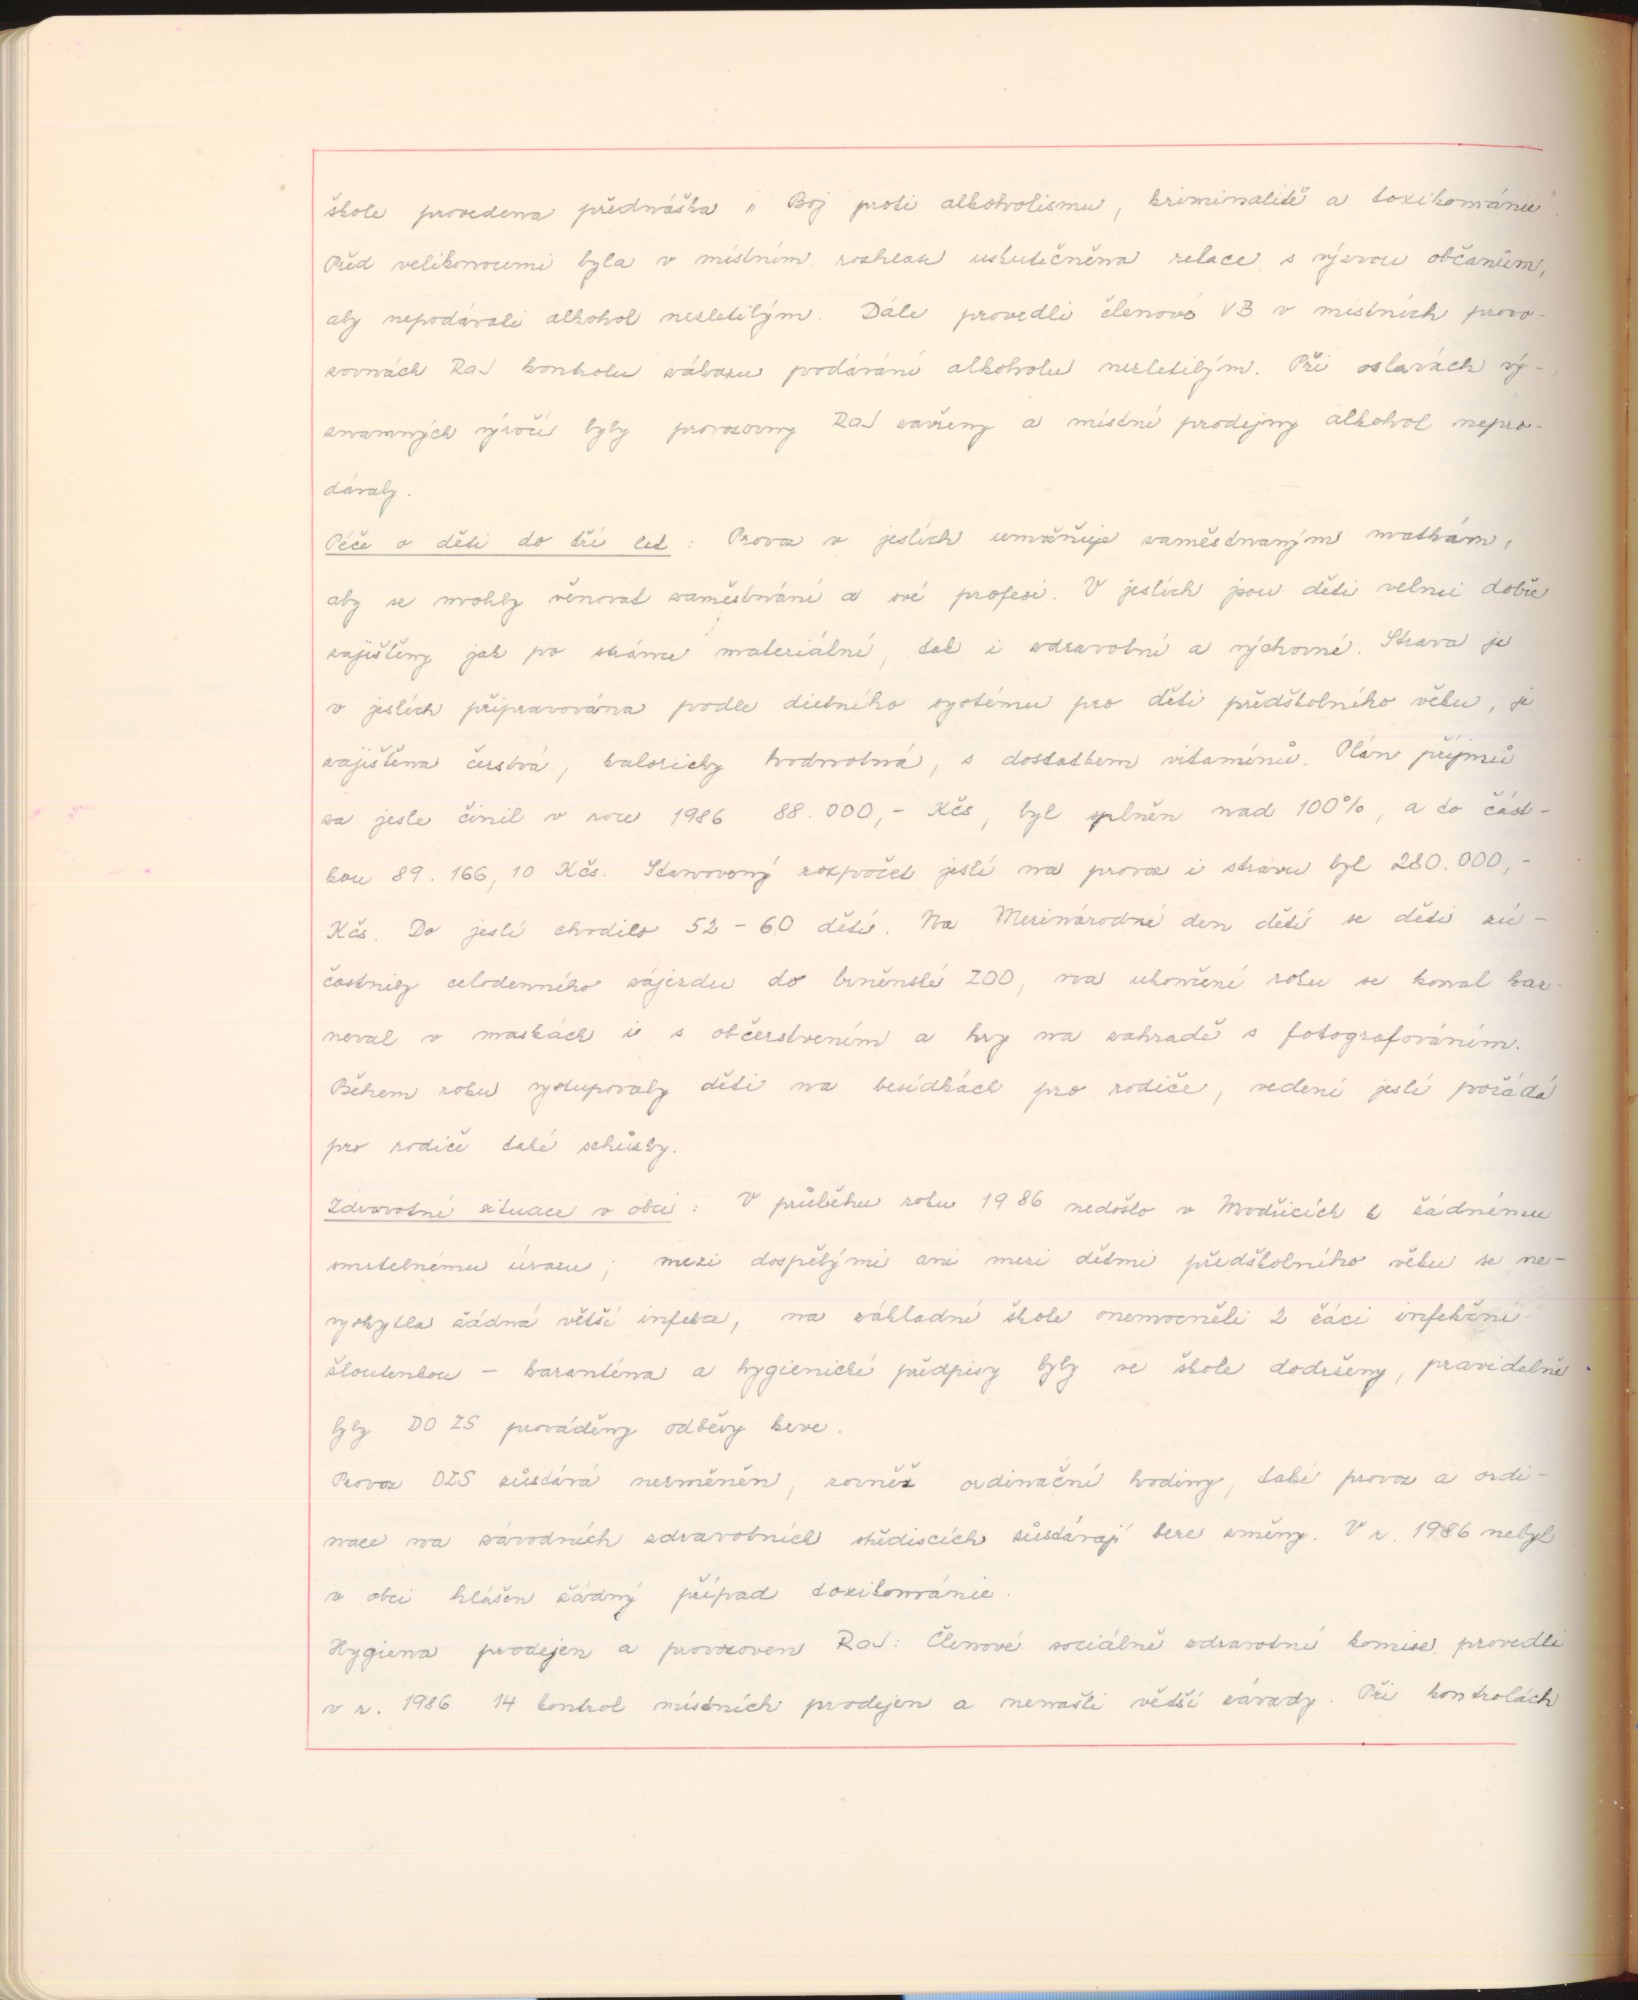 škole provedena přednáška „ Boj proti alkoholismu, kriminalitě a toxikománii".
Před velikonocemi byla v místním rozhlase uskutečněna relace s výzvou občanům,
aby nepodávali alkohol nezletilým. Dále provedli členové VB v místních provo-
zovnách RaJ kontrolu zákazu podávání alkoholu nezletilým. Při oslavách vý-
znamných výročí byly provozovny RaJ zavřeny a místní prodejny alkohol nepro-
dávaly.
Péče o děti do tří let : Provoz v jeslích umožňuje zaměstnaným matkám,
aby se mohly věnovat zaměstnání a své profesi. V jeslích jsou děti velmi dobře
zajištěny jak po stránce materiální, tak i zdravotní a výchovné. Strava je
v jeslích připravována podle dietního systému pro děti předškolního věku, je
zajištěna čerstvá, kaloricky hodnotná, s dostatkem vitamínů. Plán příjmů
za jesle činil v roce 1986 88.000,- Kčs, byl splněn nad 100%, a to část-
kou 89.166,10 Kčs. Stanovený rozpočet jeslí na provoz i stravu byl 280.000,-
Kčs. Do jeslí chodilo 52 - 60 dětí. Na Mezinárodní den dětí se děti zú-
častnily celodenního zájezdu do brněnské ZOO, na ukončení roku se konal kar-
neval v maskách i s občerstvením a hry na zahradě s fotografováním.
Během roku vystupovaly děti na besídkách pro rodiče, vedení jeslí pořádá
pro rodiče také schůzky.
Zdravotní situace v obci : V průběhu roku 1986 nedošlo v Modřicích k žádnému
smrtelnému úrazu ; mezi dospělými ani mezi dětmi předškolního věku se ne-
vyskytla žádná větší infekce, na základní škole onemocněli 2 žáci infekční
žloutenkou - karanténa a hygienické předpisy byly ve škole dodrženy, pravidelně
byly DO ZS prováděny odběry krve.
Provoz OZS zůstává nezměněn, rovněž ordinační hodiny, také provoz a ordi-
nace na závodních zdravotních střediscích zůstávají beze změny. V r. 1986 nebyl
v obci hlášen žádný případ toxikománie.
Hygiena prodejen a provozoven RaJ: Členové sociálně zdravotní komise provedli
v r. 1986 14 kontrol místních prodejen a nenašli větší závady. Při kontrolách